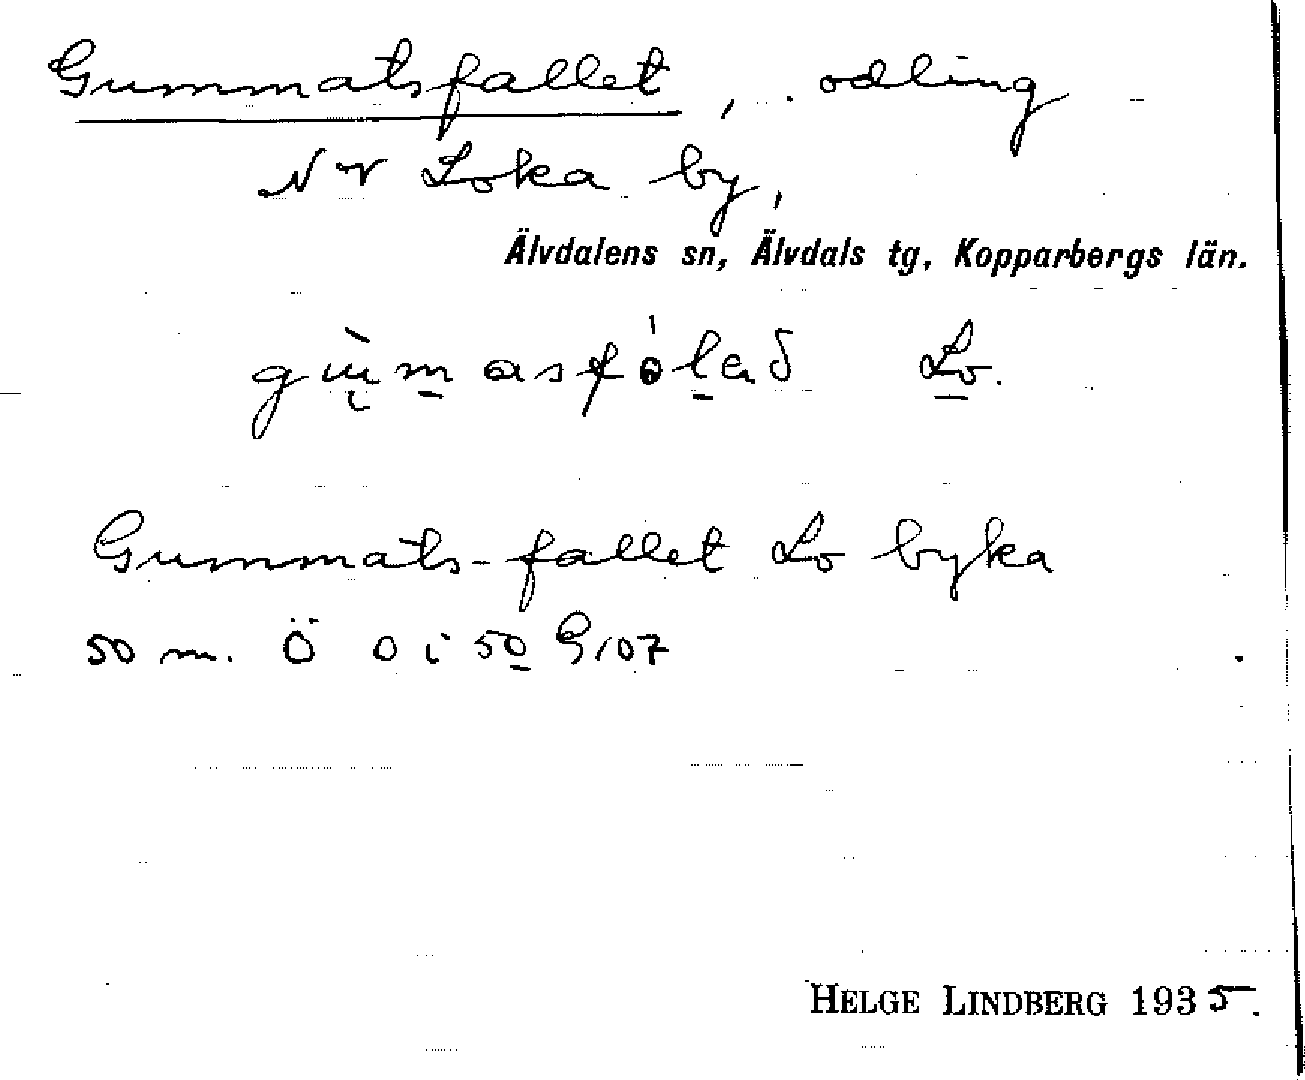 Gummatsfallet, odling
N v Loka by,
Älvdalens sn, Älvdals tg, Kopparbergs län.
Lo.
Gummats-fallet Lo byka
50 m. Ö o i 50 G 107
HELGE LINDBERG 1935.